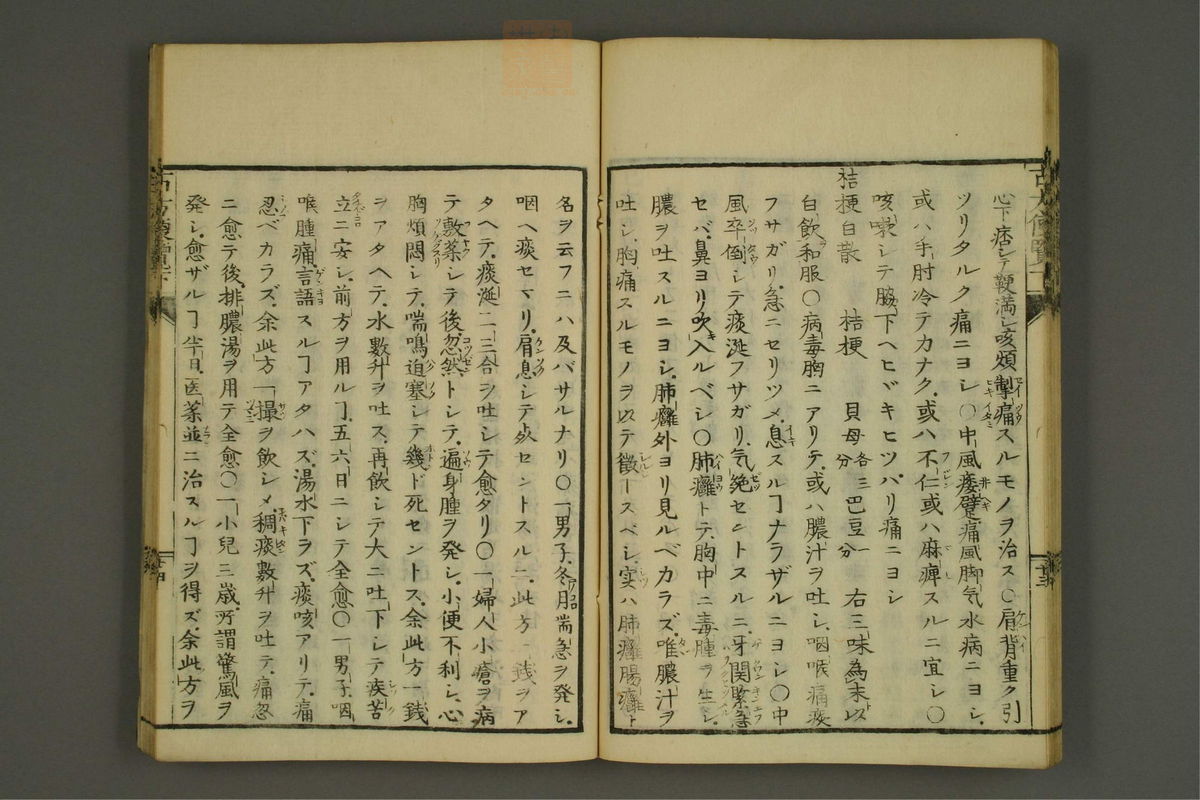 心下痞シテ鞕満シ咳煩掣痛スルモノヲ治ス〇肩背重ク引
ツリタルク痛ニヨシ〇中風痿躄痛風脚気水病ニヨシ
或ハ手肘冷テカナク或ハ不仁或ハ麻痺スルニ宜シ〇
咳嗽シテ脇下ヘヒヾキヒツパリ痛ニヨシ
桔梗白散 桔梗 貝母各三分巴豆一分 右三味為末以
白飲和服〇病毒胸ニアリテ或ハ膿汁ヲ吐シ咽喉痛痰
フサガリ急ニセリツメ息スルヿナラザルニヨシ〇中
風卒倒シテ痰涎フサガリ気絶セントスルニ牙関緊急
セバ鼻ヨリ吹入ルベシ〇肺癰トテ胸中ニ毒腫ヲ生シ
膿ヲ吐スルニヨシ肺癰外ヨリ見ルベカラズ唯膿汁ヲ
吐シ胸痛スルモノヲ以テ徴トスベシ実ハ肺癰腸癰ト
名ヲ云フニハ及バサルナリ〇一男子冬月喘急ヲ発シ
咽ヘ痰セマリ肩息シテセントスルニ此方一銭ヲア
タヘテ痰涎二三合ヲ吐シテ愈タリ〇一婦人小瘡ヲ病
テ敷薬シテ後忽然トシテ遍身腫ヲ発シ小便不利シ心
胸煩悶シテ喘鳴迫塞シテ幾ド死セントス余此方一銭
ヲアタヘテ水數升ヲ吐ス再飲シテ大ニ吐下シテ疾苦
立ニ安シ前方ヲ用ルヿ五六日ニシテ全愈〇一男子咽
喉腫痛言語スルヿアタハズ湯水下ラズ痰咳アリテ痛
忍ベカラズ余此方一撮ヲ飲シメ稠痰數升ヲ吐テ痛忽
ニ愈テ後排膿湯ヲ用テ全愈〇一小兒三歳所謂驚風ヲ
発シ愈ザルヿ半日医薬並ニ治スルヿヲ得ズ余此方ヲ